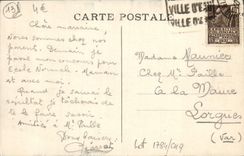 13f
4€
CARTE POSTALE
VILLE D'ES
VILLE D'E
Chère marraine,
Nous sommes chez nos
parents. Demain je
passe mon concours pour
l'Ecole Normale. Maman
et avec moi. Quand
je saurai le
résultat je tâcherai
de te faire savoir
Amitié à Mr Faille
Bons baisers
Madame Maunier
Chez Mr Faille
à la Maure
Lorgues
(Var)
Lot 1784/049